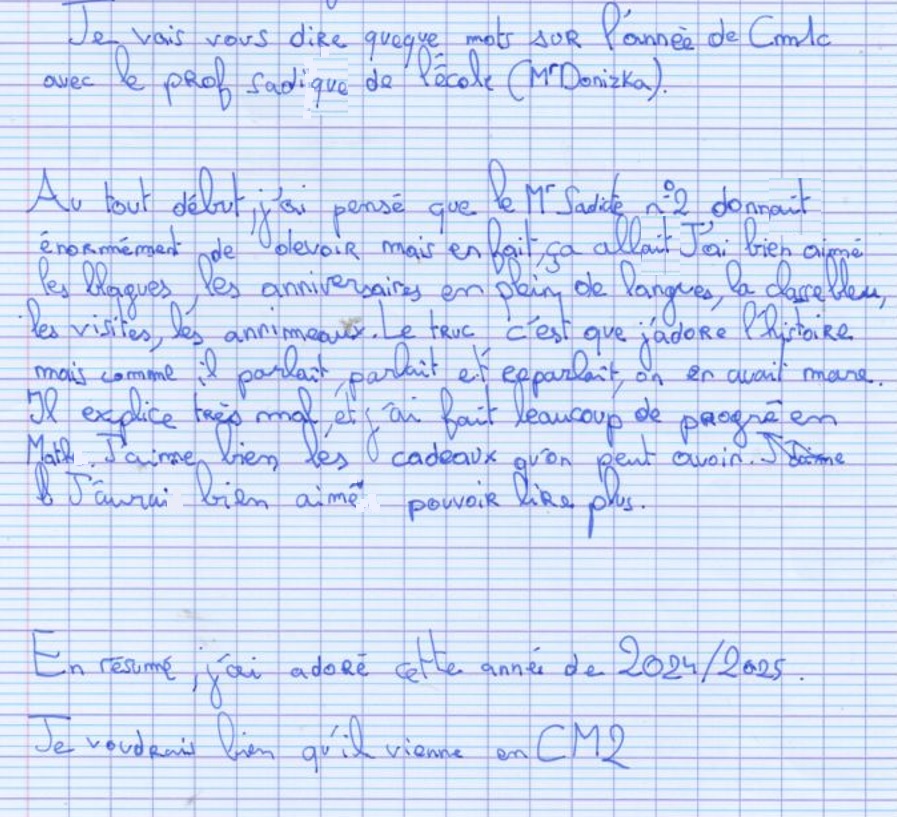 Je vais vous dire queque mots sur l'année de Cm1c
avec le prof sadique de l'école (Mr Donizka).
Au tout début, j'ai pensé que le Mr Sadide n°2 donnait
énormément de devoir mais en fait, ça allait J'ai bien aimé
les blagues, les anniversaires en plein de langues, la classe bleu,
les visites, les annimeaux. Le truc c'est que j'adore l'histoire
mais comme il parlait, parlait et repparlait, on en avait mare.
Il explice très mal, et j'ai fait beaucoup de progré en
Math. J'aime bien les cadeaux qu'on peut avoir. J'aime
J'aurai bien aimé pouvoir lire plus.
En résumé, j'ai adoré cette année de 2024/2025.
Je voudrais bien qu'il vienne en CM2